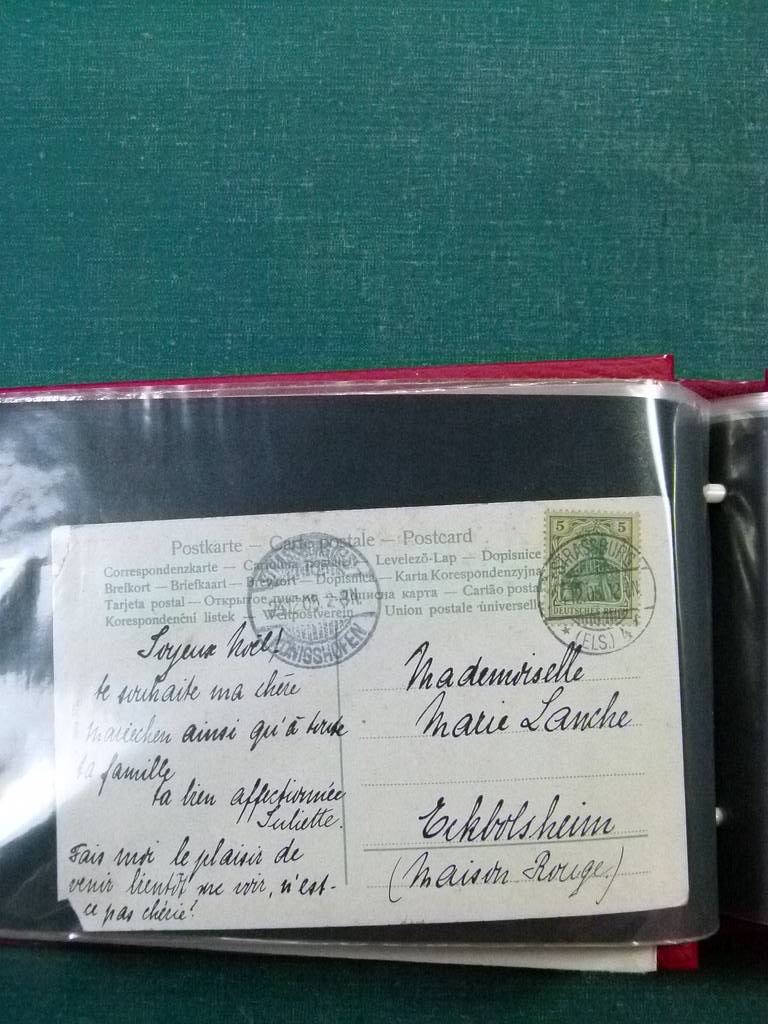 Postkarte — Carte postale — Postcard
Correspondenzkarte — Levelező-Lap — Dopisnice
Brefkort — Briefkaart — Brevkort — Dopisnica — Karta Korespondenzyjna
Tarjeta postal — Открытое письмо — карта — Cartão postal
Korespondenční listek — Weltpostverein — Union postale universelle
5 5
DEUTSCHES REICH
STRASSBURG
(ELS.) 4
KÖNIGSHOFEN
Joyeux Noël!
te souhaite ma chère
Mariechen ainsi qu'à toute
ta famille
ta bien affectionnée
Juliette.
Fais moi le plaisir de
venir bientôt me voir, n'est-
ce pas chérie!
Mademoiselle
Marie Lanche
Eckbolsheim
(Maison Rouge.)